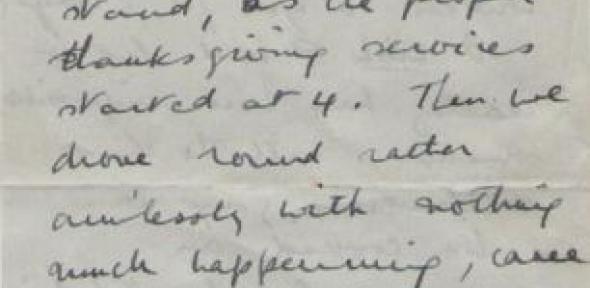 stand, as the proper
thanksgiving services
started at 4. Then we
drove round rather
aimlessly with nothing
much happening, came